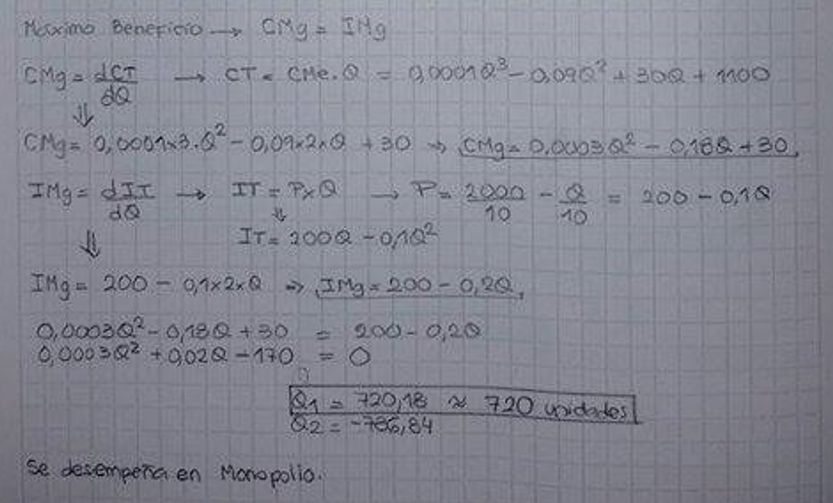 Máximo Beneficio → CMg = IMg
CMg = dCT/dQ → CT = CMe.Q = 0,0001Q³ - 0,09Q² + 30Q + 1100
⇓
CMg = 0,0001x3.Q² - 0,09x2xQ + 30 ⇒ CMg = 0,0003Q² - 0,18Q + 30
IMg = dIT/dQ → IT = PxQ → P = 2000/10 - Q/10 = 200 - 0,1Q
⇓ ⇓
IT = 200Q - 0,1Q²
IMg = 200 - 0,1x2xQ ⇒ IMg = 200 - 0,2Q
0,0003Q² - 0,18Q + 30 = 200 - 0,2Q
0,0003Q² + 0,02Q - 170 = 0
Q1 = 720,18 ≈ 720 unidades
Q2 = -786,84
Se desempeña en Monopolio.